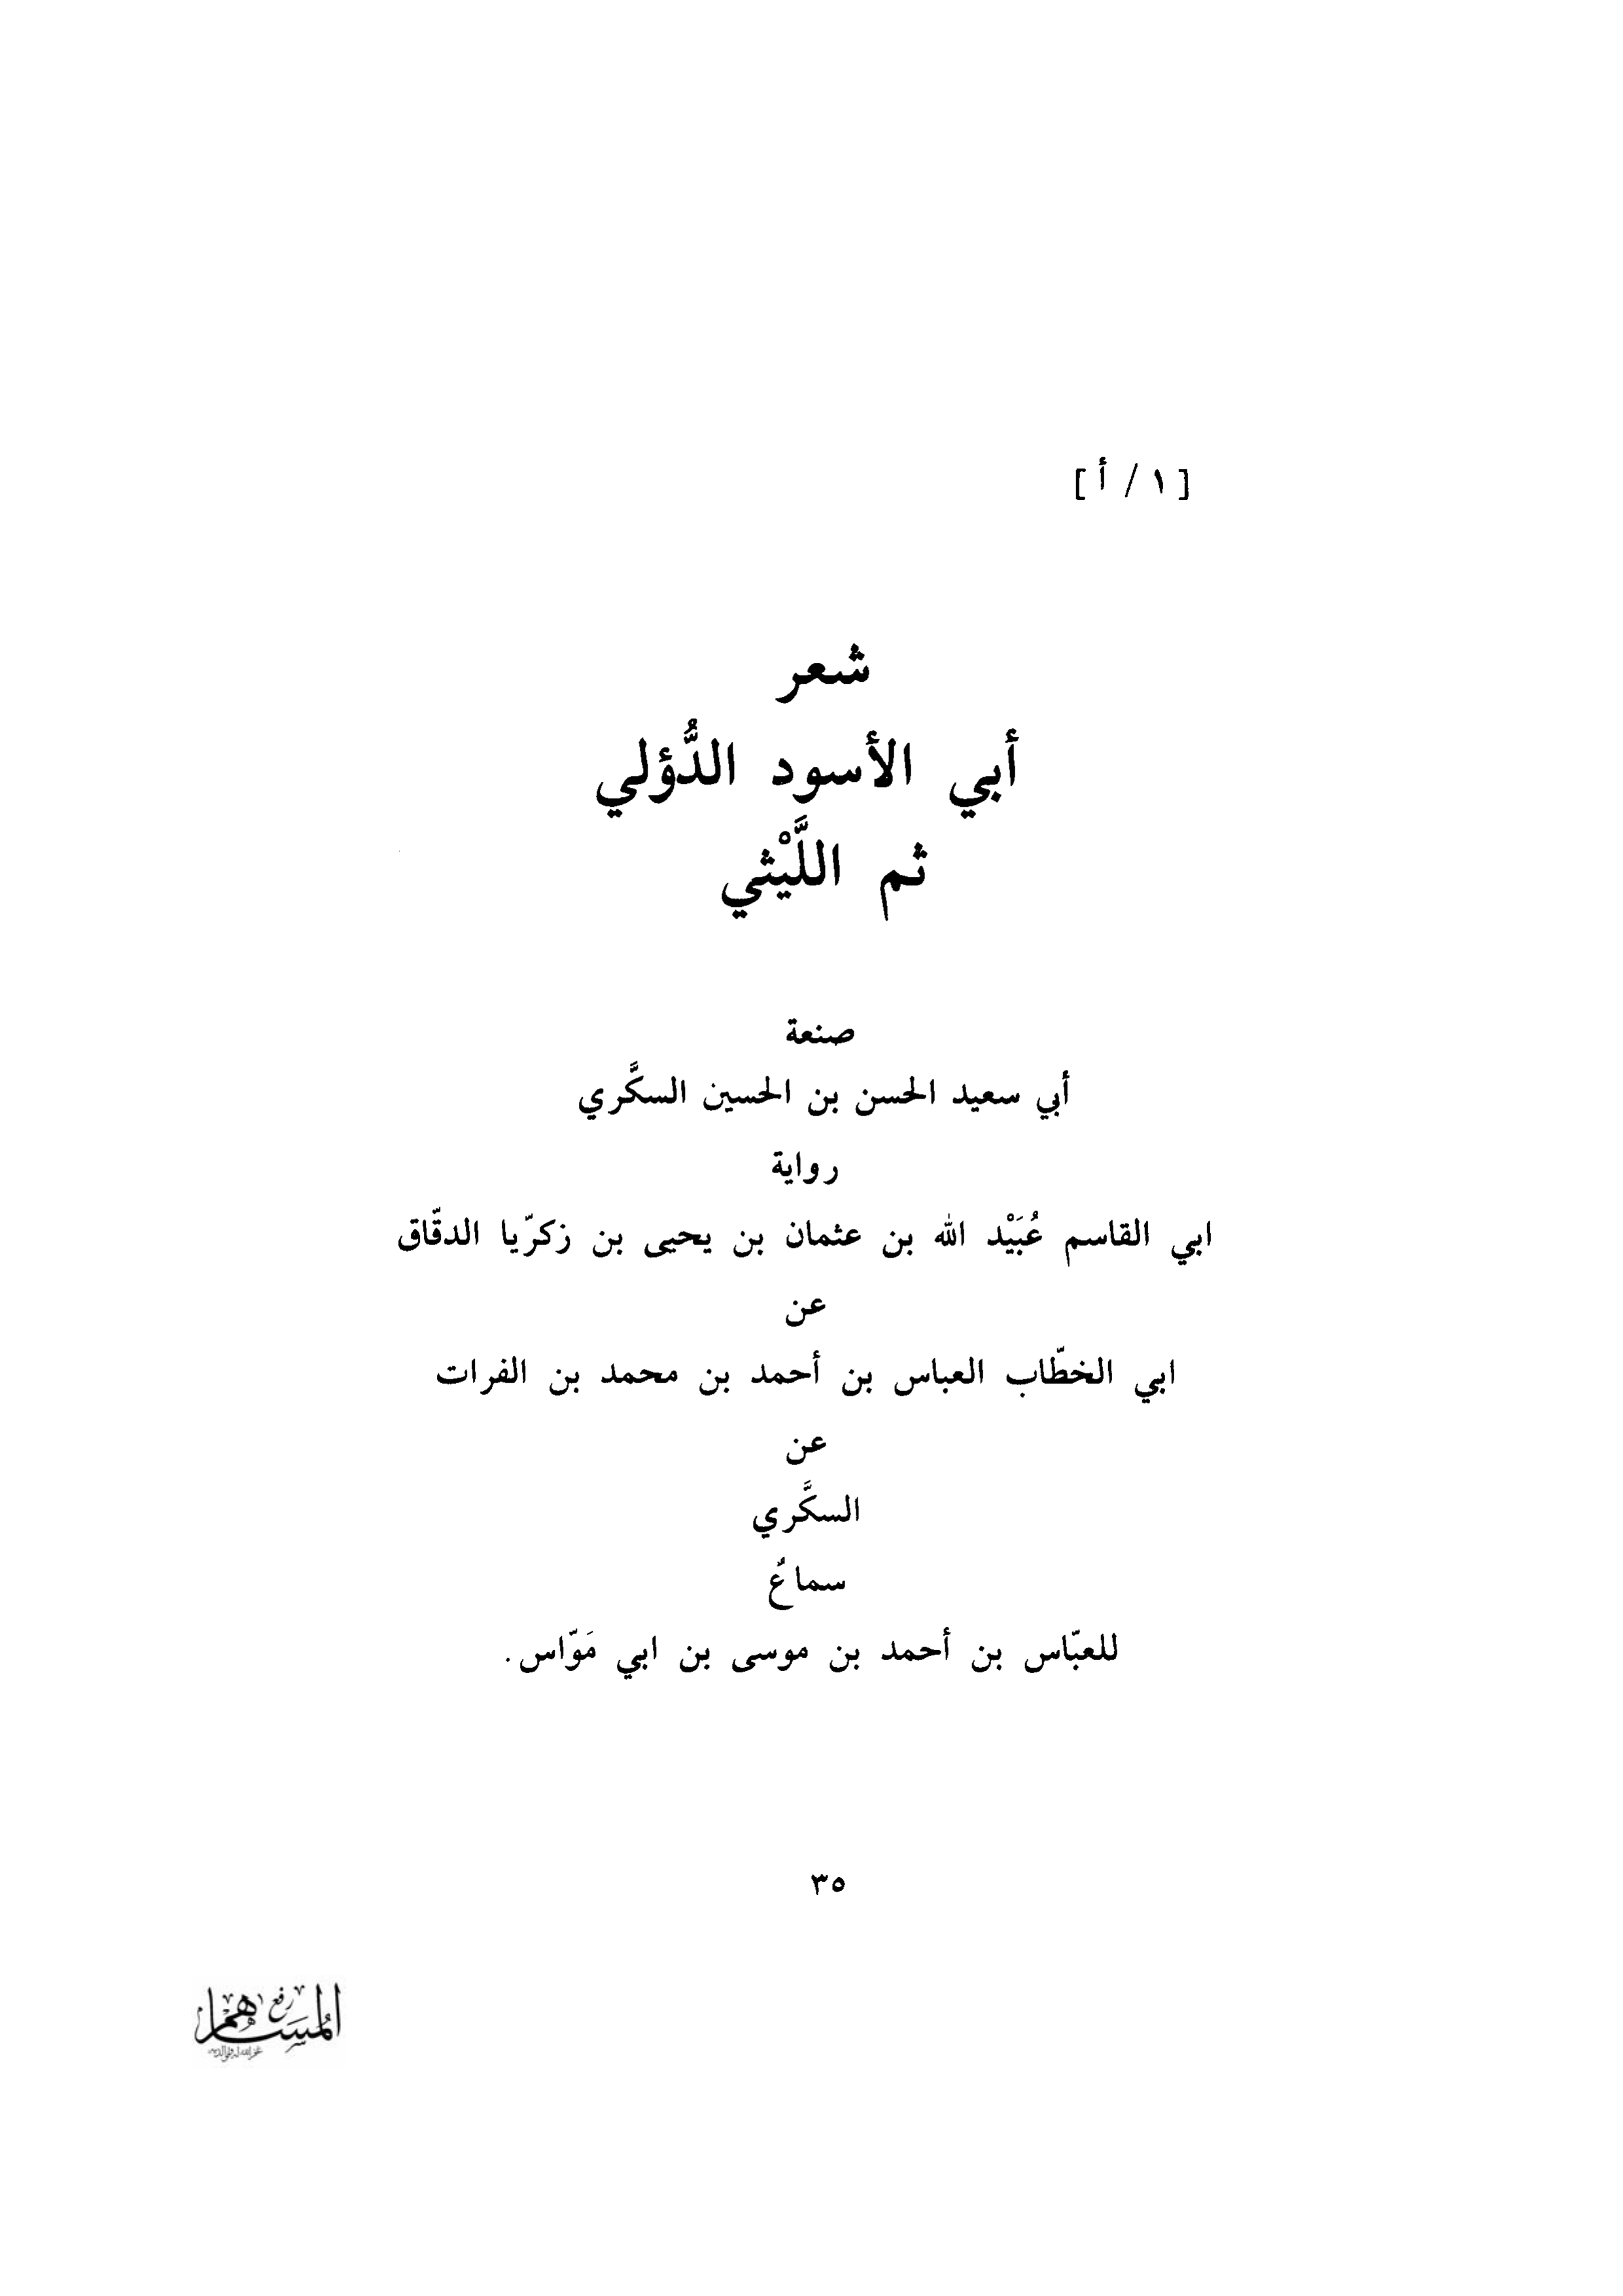 [ ١ / أ ]
شعر
أبي الأسود الدُّؤلي
ثم اللَّيْثي
صنعة
أبي سعيد الحسن بن الحسين السكَّري
رواية
ابي القاسم عُبَيْد الله بن عثمان بن يحيى بن زكرّيا الدقّاق
عن
ابي الخطّاب العباس بن أحمد بن محمد بن الفرات
عن
السكَّري
سماعٌ
للعبّاس بن أحمد بن موسى بن ابي مَوّاس.
٣٥
رفع
المساهم
غفر الله له ولوالديه